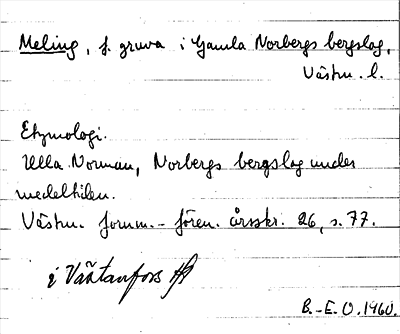 Meling, f. gruva i Gamla Norbergs bergslag,
Västm. l.
Etymologi.
Ulla Norman, Norbergs bergslag under
medeltiden.
Västm. fornm.-fören. årsskr. 26, s. 77.
i Västanfors
B.-E. O. 1960.